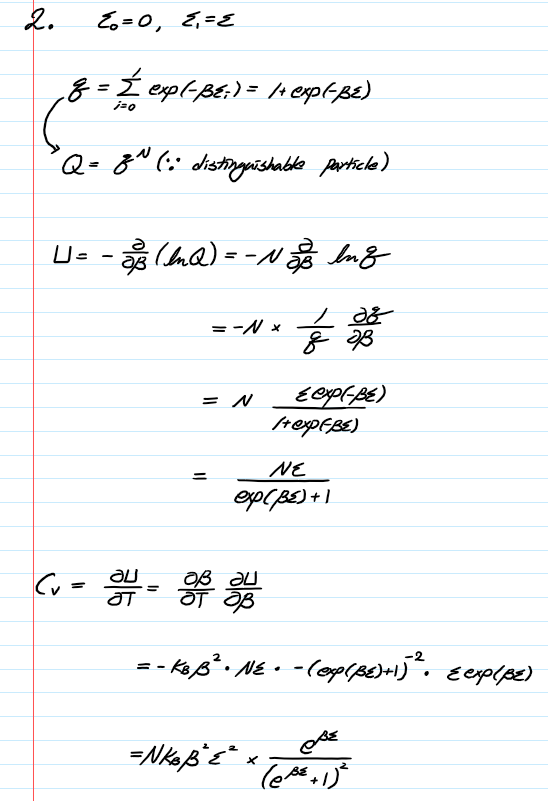 2. ε₀=0, ε₁=ε
q = ∑_{i=0}^{1} exp(-βεᵢ) = 1+exp(-βε)
Q = q^N (∵ distinguishable particle)
U = - ∂/∂β (lnQ) = -N ∂/∂β ln q
= -N × 1/q ∂q/∂β
= N εexp(-βε)/(1+exp(-βε))
= Nε/(exp(βε)+1)
Cᵥ = ∂U/∂T = ∂β/∂T ∂U/∂β
= -k_B β² · Nε · -(exp(βε)+1)^{-2} · εexp(βε)
= Nk_B β² ε² × e^{βε}/(e^{βε}+1)²